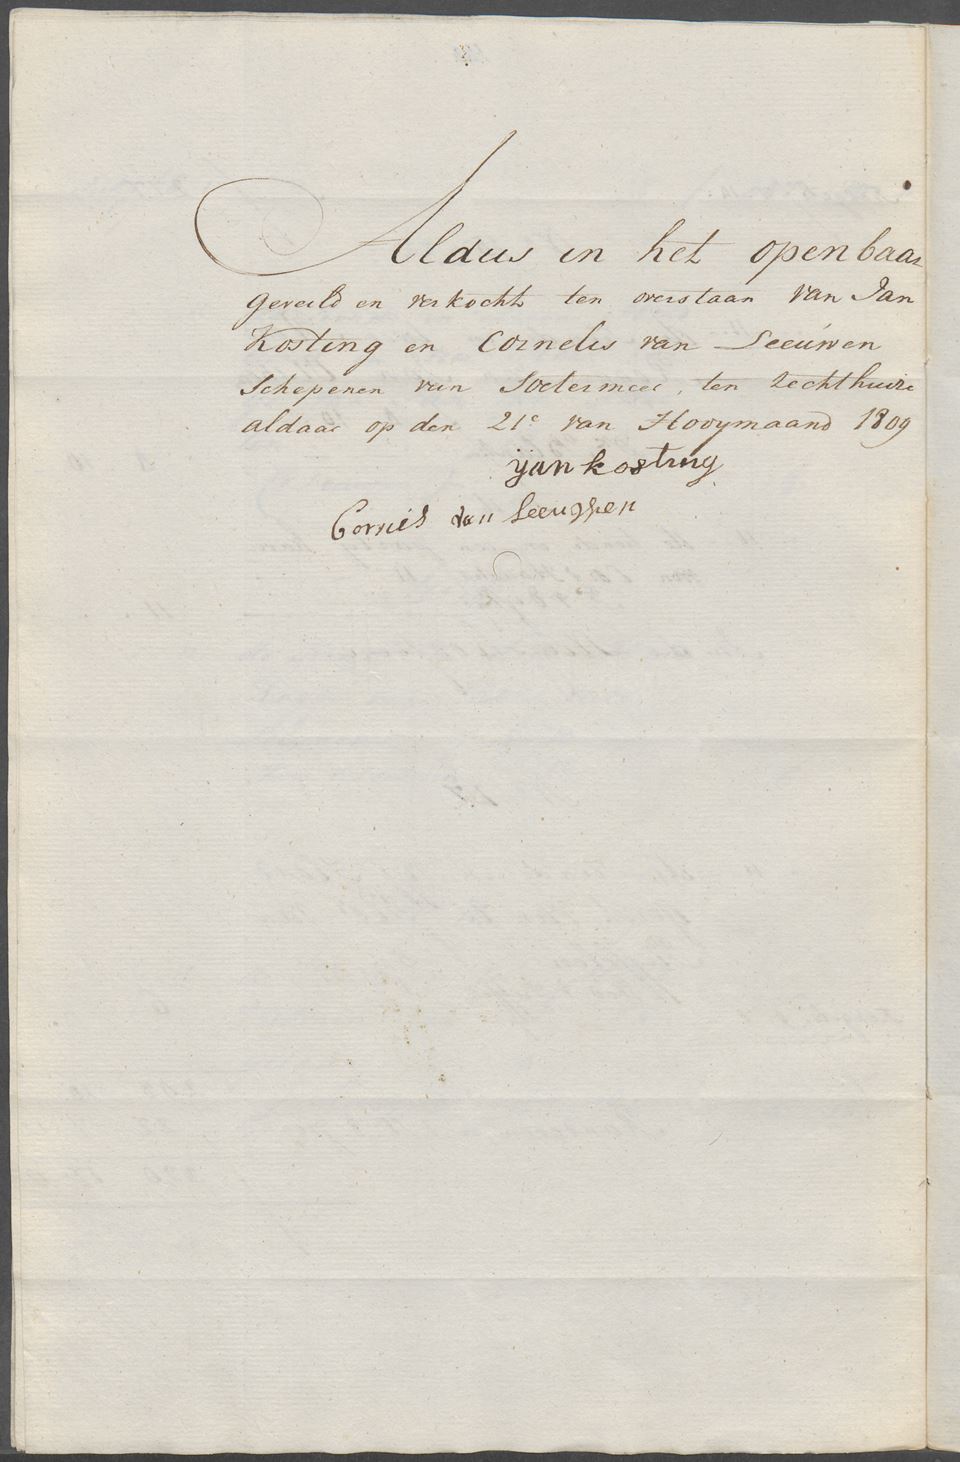 Aldus in het openbaar
geveild en verkocht ten overstaan van Jan
Kosting en Cornelis van Leeuwen
Schepenen van Soetermeer, ten Rechthuize
aldaar op den 21e van Hooymaand 1809
ijan kosting
Cornes van Leeuwen